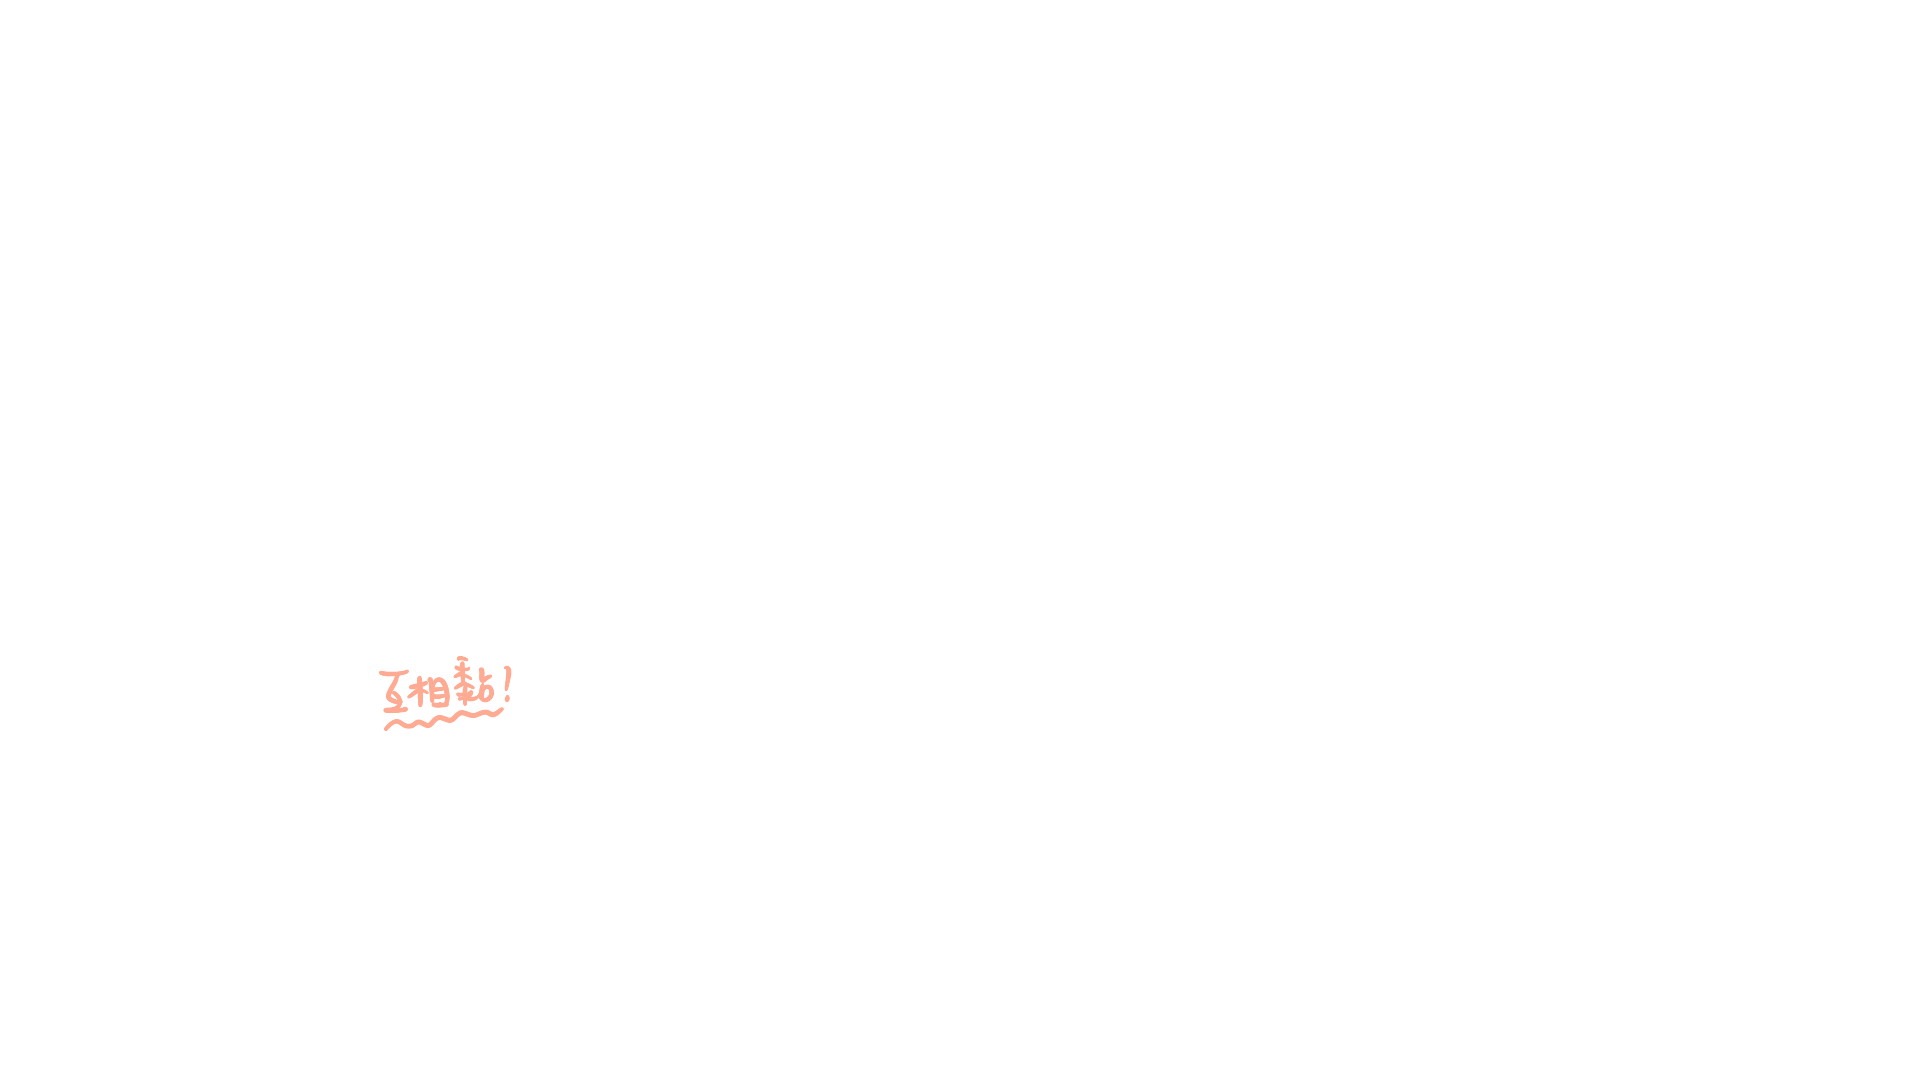 互相黏!